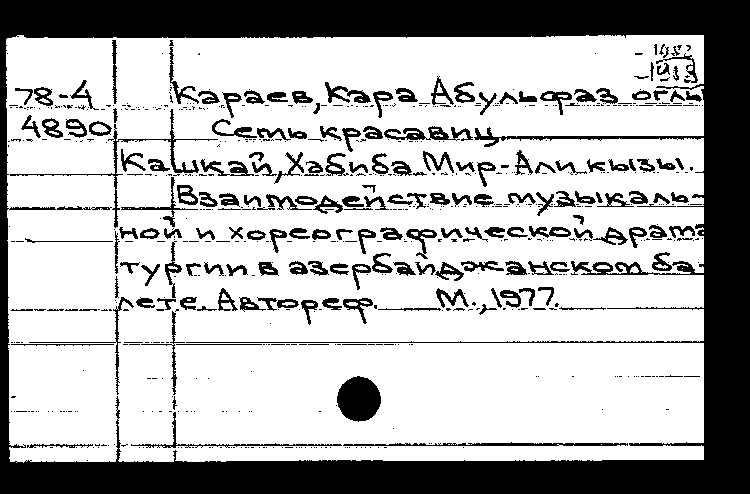 - 1982
- 1983
78-4 Караев, Кара Абульфаз оглы
4890 Семь красавиц
Кашкай, Хабиба Мир-Али кызы.
Взаимодействие музыкаль-
ной и хореографической драма
тургии в азербайджанском ба-
лете. Автореф. М., 1977.